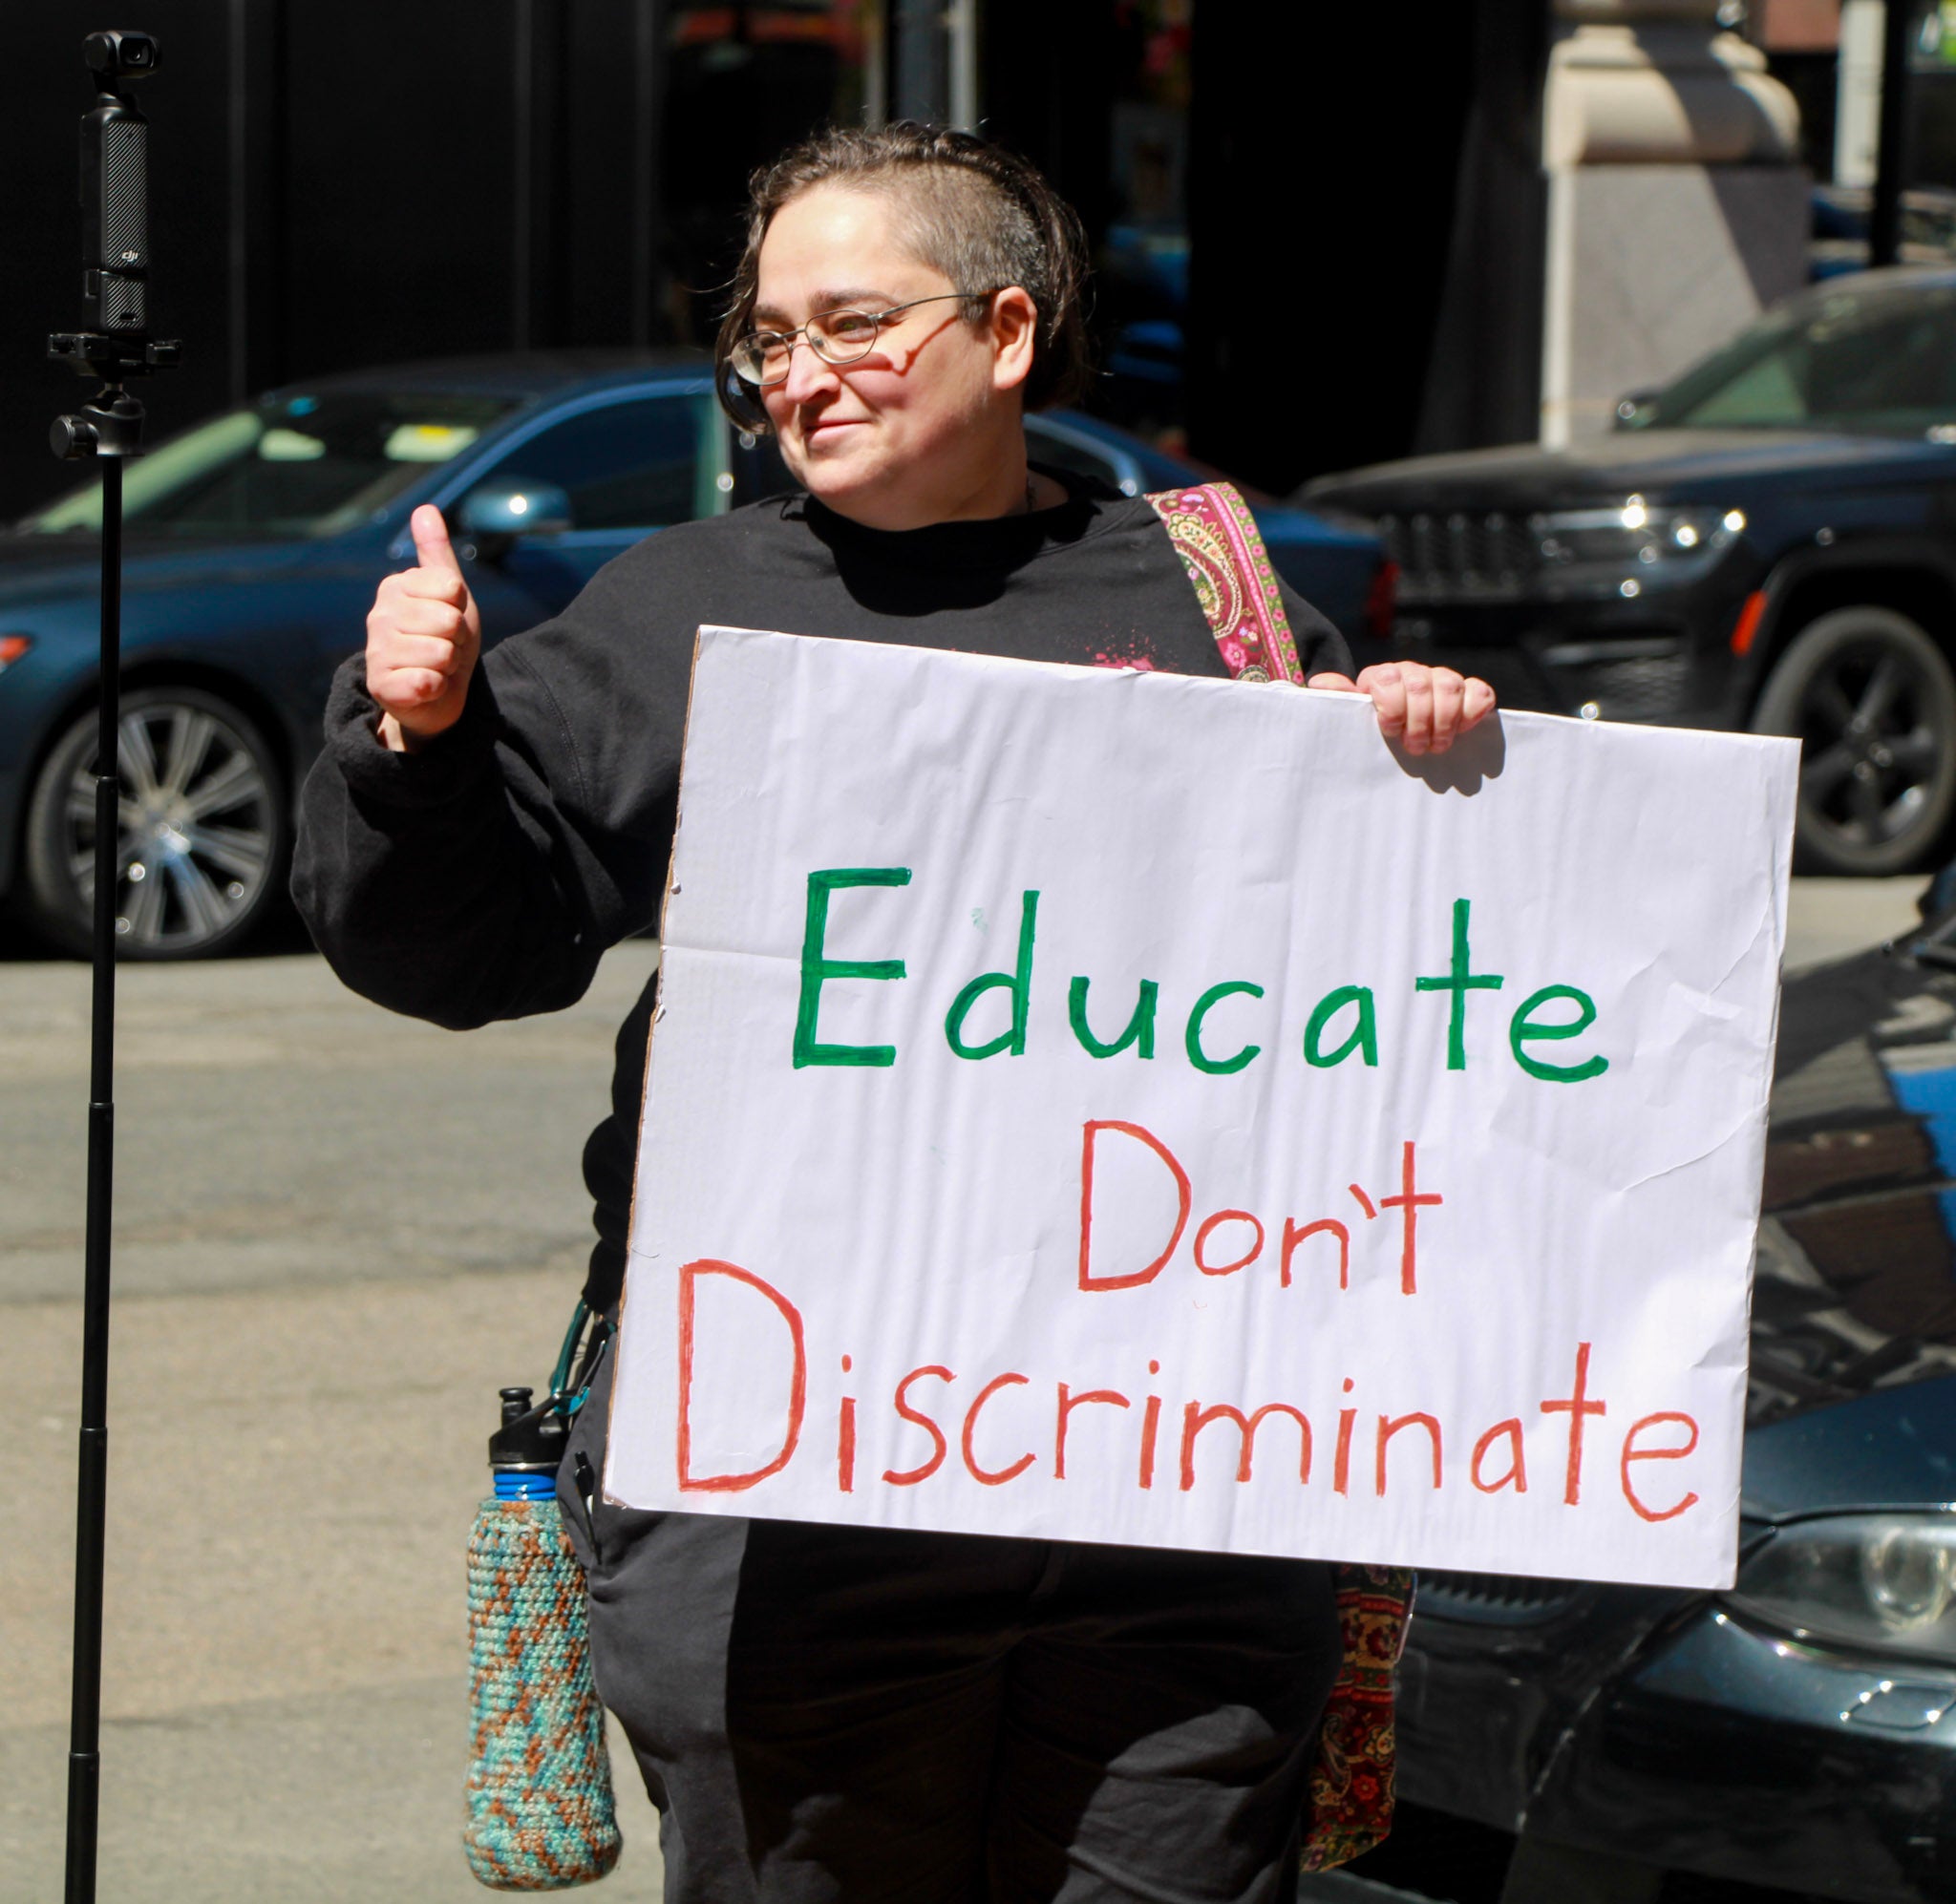 dji
Educate
Don't
Discriminate